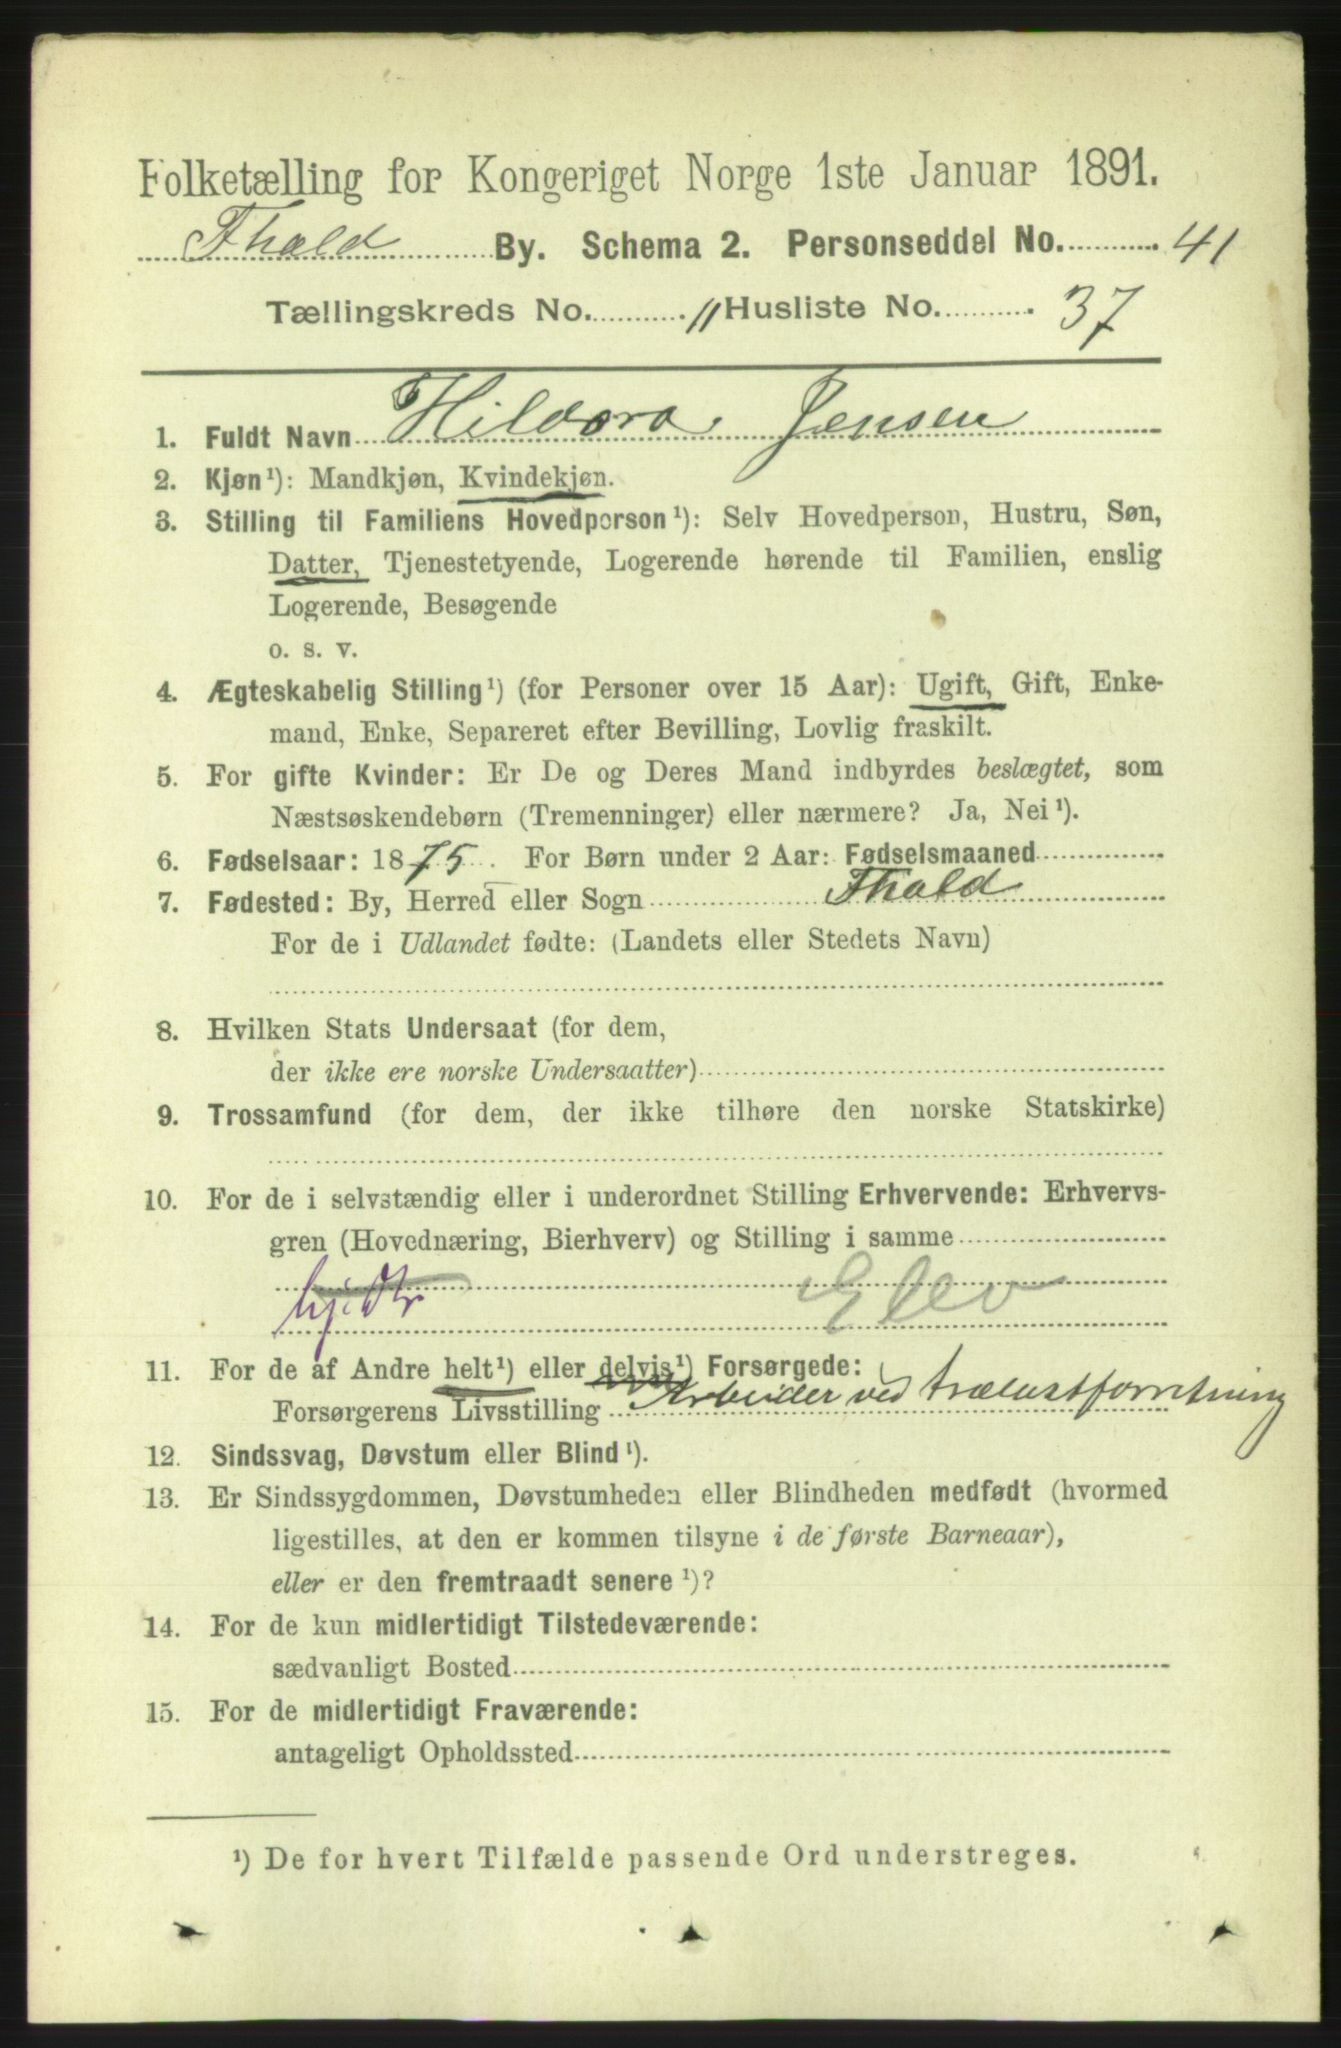 Folketælling for Kongeriget Norge 1ste Januar 1891.
Fhald By. Schema 2. Personseddel No. 41
Tællingskreds No. 11 Husliste No. 37
1. Fuldt Navn Hildora Jensen
2. Kjøn¹): Mandkjøn, Kvindekjøn.
3. Stilling til Familiens Hovedperson¹): Selv Hovedperson, Hustru, Søn,
Datter, Tjenestetyende, Logerende hørende til Familien, enslig
Logerende, Besøgende
o. s. v.
4. Ægteskabelig Stilling¹) (for Personer over 15 Aar): Ugift, Gift, Enke-
mand, Enke, Separeret efter Bevilling, Lovlig fraskilt.
5. For gifte Kvinder: Er De og Deres Mand indbyrdes beslægtet, som
Næstsøskendebørn (Tremenninger) eller nærmere? Ja, Nei¹).
6. Fødselsaar: 1875. For Børn under 2 Aar: Fødselsmaaned
7. Fødested: By, Herred eller Sogn Fhald
For de i Udlandet fødte: (Landets eller Stedets Navn)
8. Hvilken Stats Undersaat (for dem,
der ikke ere norske Undersaatter)
9. Trossamfund (for dem, der ikke tilhøre den norske Statskirke)
10. For de i selvstændig eller i underordnet Stilling Erhvervende: Erhvervs-
gren (Hovednæring, Bierhverv) og Stilling i samme
hj. Dtr Elev
11. For de af Andre helt¹) eller delvis¹) Forsørgede:
Forsørgerens Livsstilling Arbeider ved trælastforretning
12. Sindssvag, Døvstum eller Blind¹).
13. Er Sindssygdommen, Døvstumheden eller Blindheden medfødt (hvormed
ligestilles, at den er kommen tilsyne i de første Barneaar),
eller er den fremtraadt senere¹)?
14. For de kun midlertidigt Tilstedeværende:
sædvanligt Bosted
15. For de midlertidigt Fraværende:
antageligt Opholdssted
¹) De for hvert Tilfælde passende Ord understreges.